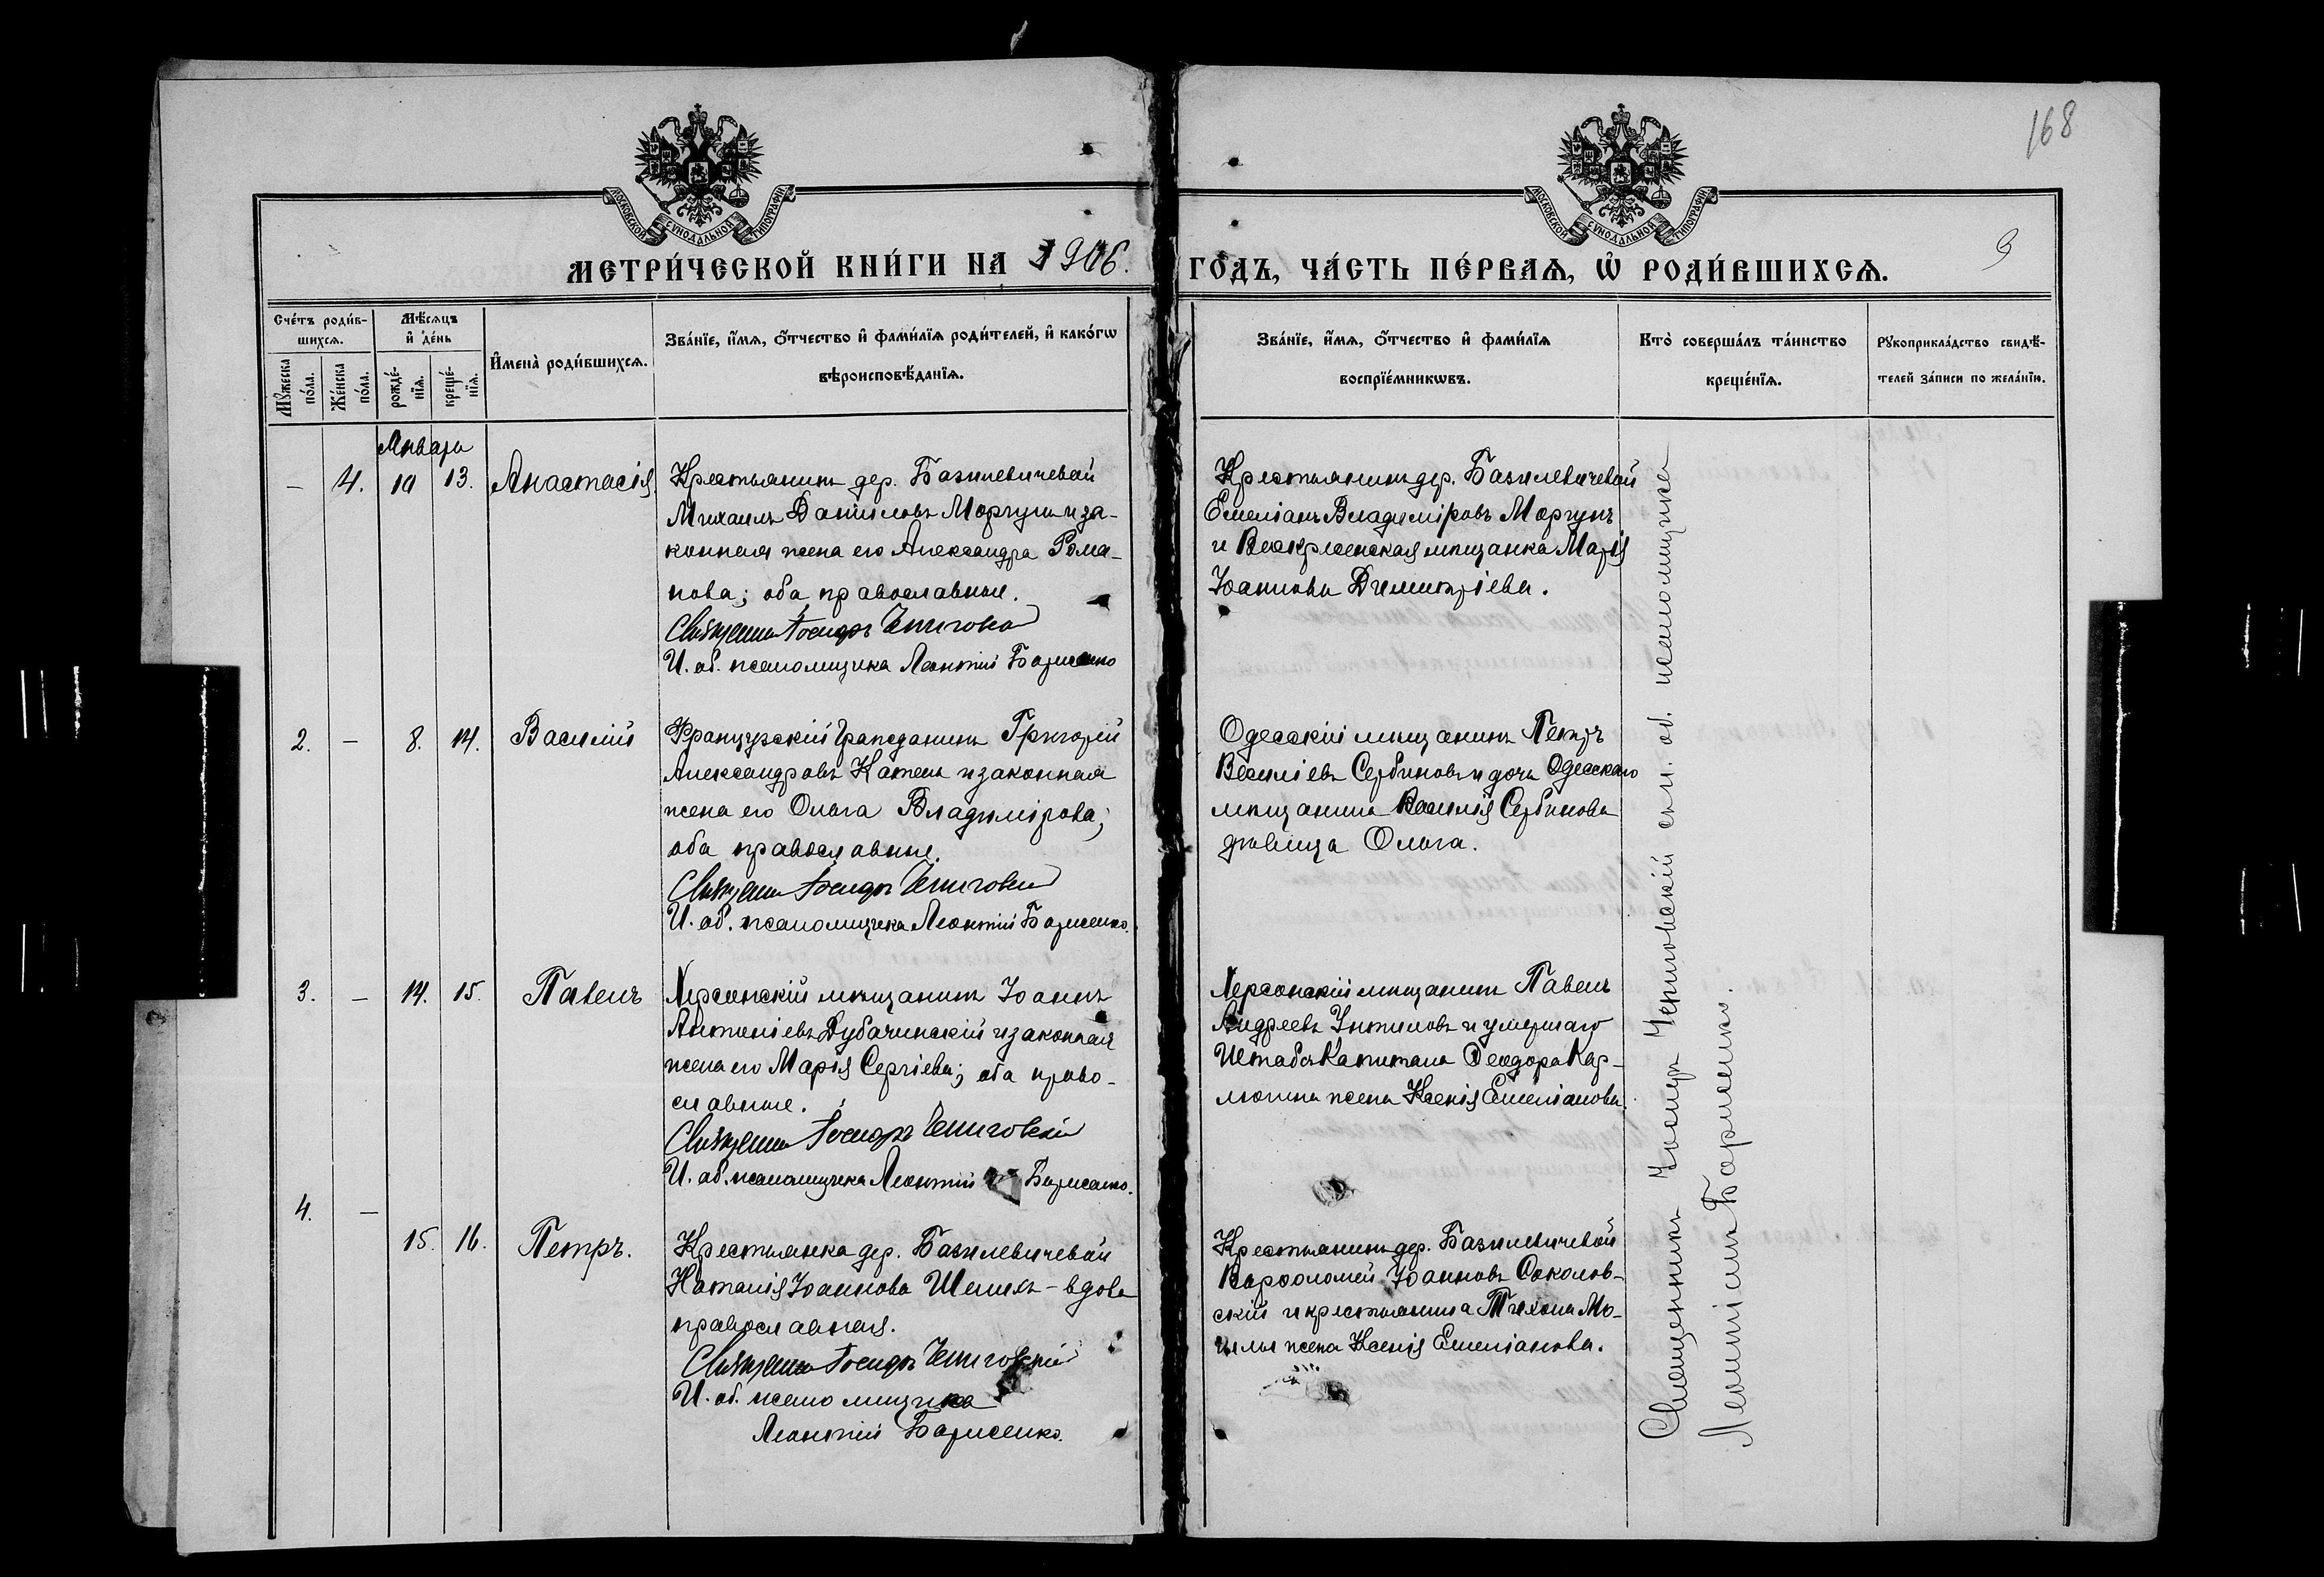 168
МОСКОВСКОЙ СѴНОДАЛЬНОЙ ТИПОГРАФІИ
МОСКОВСКОЙ СѴНОДАЛЬНОЙ ТИПОГРАФІИ
9
МЕТРИ́ЧЕСКОЙ КНИ́ГИ НА 1906.
ГО́ДЪ, ЧА́СТЬ ПЕ́РВАѦ, Ѡ҆ РОДИ́ВШИХСѦ.
Сче́тъ роди́в-
шихсѧ.
Мꙋ́жеска по́ла.
Же́нска по́ла.
Мѣ́сѧцъ
и҆ де́нь
рожде́-
нїѧ.
креще́-
нїѧ.
И҆мена̀ роди́вшихсѧ.
Зва́нїе, и҆́мѧ, ѻ҆́тчество и҆ фами́лїѧ роди́телей, и҆ како́гѡ
вѣроисповѣ́данїѧ.
Зва́нїе, и҆́мѧ, ѻ҆́тчество и҆ фами́лїѧ
воспрїе́мникѡвъ.
Кто̀ соверша́лъ та́инство
креще́нїѧ.
Рꙋкоприкла́дство свидѣ́-
телей за́писи по жела́нїю.
Января
— 4. 10 13. Анастасія
Крестьянинъ дер. Базилевичевой
Михаилъ Даніиловъ Моргунъ и за-
конная жена его Александра Рома-
нова; оба православные.
Священникъ Іосифъ Чепиговскій
И. об. псаломщика Леонтій Борисенко
Крестьянинъ дер. Базилевичевой
Емеліанъ Владиміровъ Моргунъ
и Воскресенская мѣщанка Марія
Іоаннова Димитріева.
2. — 8. 14. Василій
Французскій гражданинъ Григорій
Александровъ Катель и законная
жена его Ольга Владимірова;
оба православные.
Священникъ Іосифъ Чепиговскій
И. об. псаломщика Леонтій Борисенко.
Одесскій мѣщанинъ Петръ
Василіевъ Сербиновъ и дочь Одесскаго
мѣщанина Василія Сербинова
дѣвица Ольга.
3. — 14. 15. Павелъ
Херсонскій мѣщанинъ Іоаннъ
Антоніевъ Дубачинскій и законная
жена его Марія Сергіева; оба право-
славные.
Священникъ Іосифъ Чепиговскій
И. об. псаломщика Леонтій Борисенко.
Херсонскій мѣщанинъ Павелъ
Андреевъ и умершаго
Штабсъ Капитана Ѳеодора Кар-
жена Ксенія Емеліанова.
4. — 15. 16. Петръ.
Крестьянка дер. Базилевичевой
Наталія Іоаннова — вдова
православная.
Священникъ Іосифъ Чепиговскій
И. об. псаломщика
Леонтій Борисенко.
Крестьянинъ дер. Базилевичевой
Варѳоломей Іоанновъ Соколов-
скій и крестьянина Тихона Мо-
гилы жена Ксенія Емеліанова.
Священникъ Іосифъ Чепиговскій съ и. об. псаломщика
Леонтіемъ Борисенко.